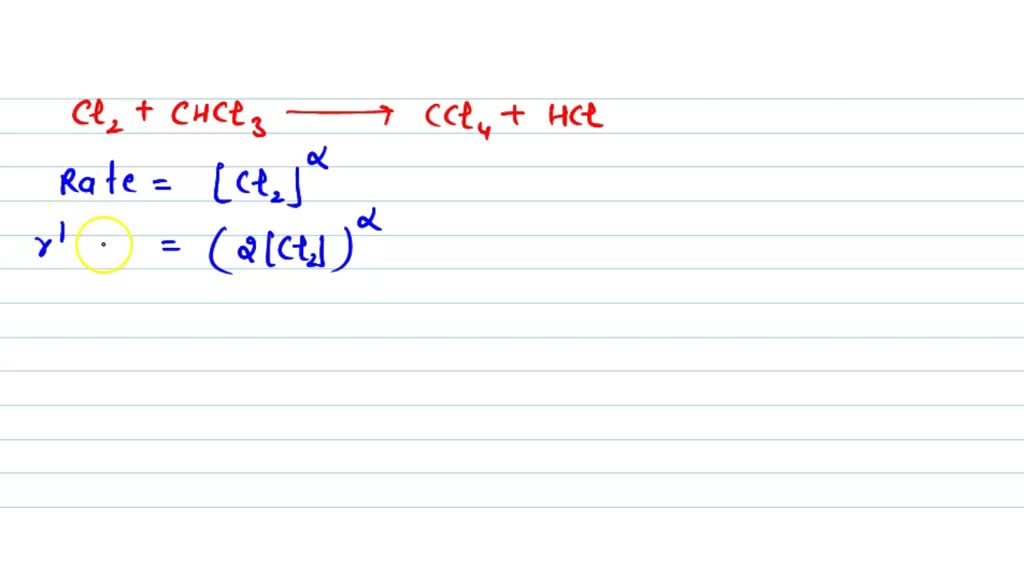 Cl₂ + CHCl₃ ⟶ CCl₄ + HCl
Rate = [Cl₂]^α
r' = (2[Cl₂])^α